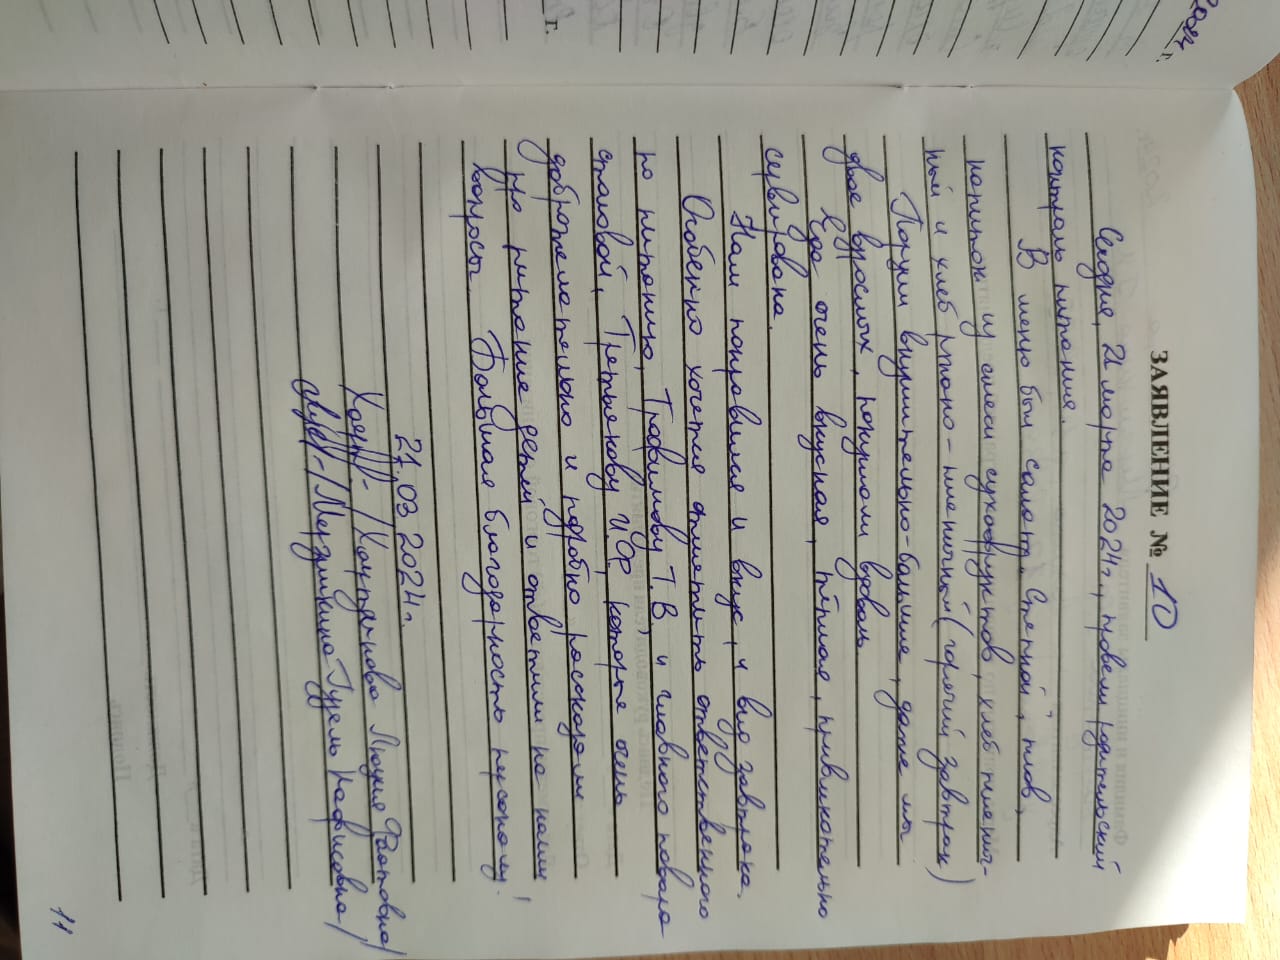 ЗАЯВЛЕНИЕ № 10
Сегодня, 21 марта 2024г., провели родительский
контроль питания.
В меню был салат "Степной", плов,
напиток из смеси сухофруктов, хлеб пшенич-
ный и хлеб ржано-пшеничный (горячий завтрак)
Порции внушительно-большие, даже мы
двое взрослых, покушали вдоволь.
Еда очень вкусная, тёплая, привлекательно
сервирована.
Нам понравился и вкус, и вид завтрака.
Особенно хочется отметить ответственного
по питанию, Трофимову Т.В. и главного повара
столовой, Третьякову И.Ф., которые очень
доброжелательно и подробно рассказали
про питание детей и ответили на наши
вопросы. Большая благодарность персоналу!
21.03.2024г.
Люция Фаатовна/
Гузель Нафисовна/
11
г.
г.